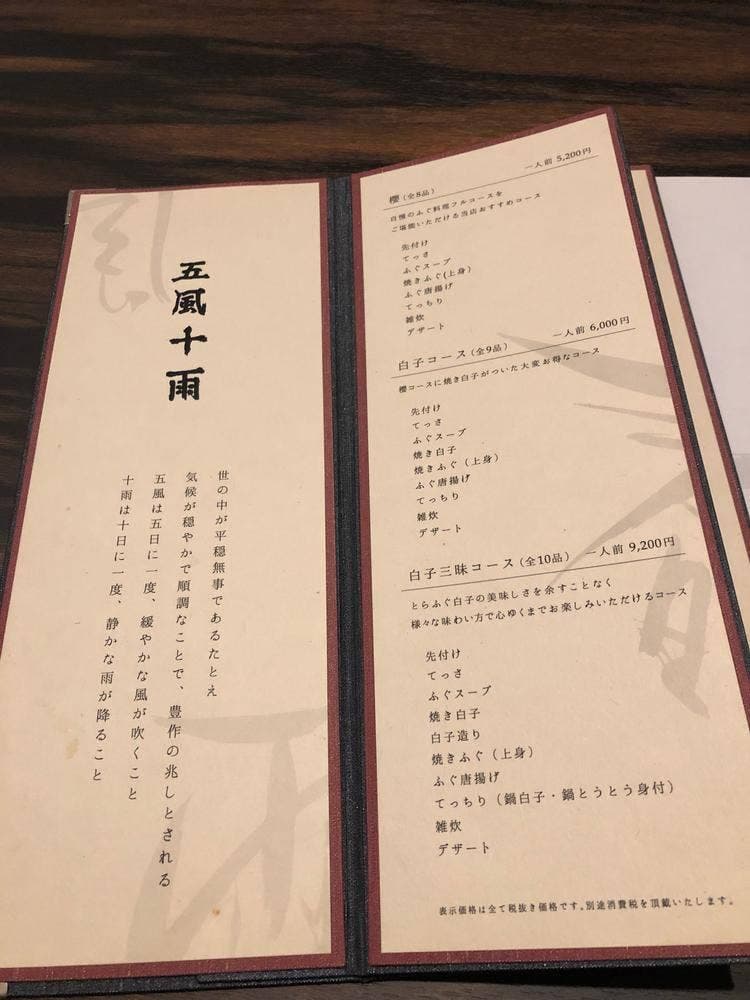 五風十雨
世の中が平穏無事であるたとえ
気候が穏やかで順調なことで、豊作の兆しとされる
五風は五日に一度、緩やかな風が吹くこと
十雨は十日に一度、静かな雨が降ること
櫻（全8品） 一人前 5,200円
自慢のふぐ料理フルコースを
ご堪能いただける当店おすすめコース
先付け
てっさ
ふぐスープ
焼きふぐ（上身）
ふぐ唐揚げ
てっちり
雑炊
デザート
白子コース（全9品） 一人前 6,000円
櫻コースに焼き白子がついた大変お得なコース
先付け
てっさ
ふぐスープ
焼き白子
焼きふぐ（上身）
ふぐ唐揚げ
てっちり
雑炊
デザート
白子三昧コース（全10品） 一人前 9,200円
とらふぐ白子の美味しさを余すことなく
様々な味わい方で心ゆくまでお楽しみいただけるコース
先付け
てっさ
ふぐスープ
焼き白子
白子造り
焼きふぐ（上身）
ふぐ唐揚げ
てっちり（鍋白子・鍋とうとう身付）
雑炊
デザート
表示価格は全て税抜き価格です。別途消費税を頂戴いたします。